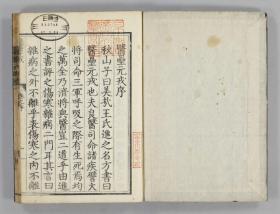 醫壘元戎序
秋山子曰吳欽王氏進之名方書曰
醫壘元戎也夫良醫司命諸疾譬大
將司命三軍呼吸之際有生死焉均
之萬全乃濟將與醫豈二道乎由進
之書評之傷寒雜病二門耳其言曰
雜病之外不離乎表傷寒之內不離